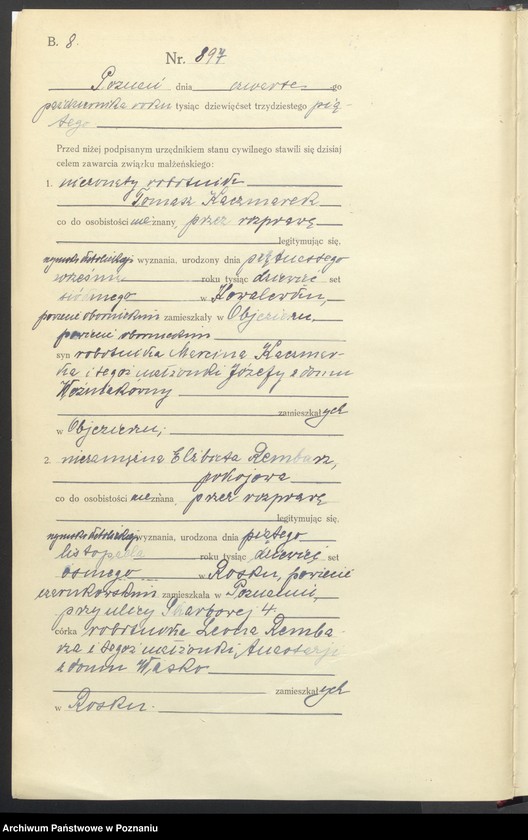 B. 8.
Nr. 897
Poznań dnia czwartego
października roku tysiąc dziewięćset trzydziestego pią-
tego
Przed niżej podpisanym urzędnikiem stanu cywilnego stawili się dzisiaj
celem zawarcia związku małżeńskiego:
1. nieżonaty robotnik
Tomasz Kaczmarek
co do osobistości nieznany, przez rozprawę
legitymując się,
rzymsko katolickiej wyznania, urodzony dnia piętnastego
września roku tysiąc dziewięć set
siódmego w Kowalewku,
powiecie obornickim zamieszkały w Objezierzu,
powiecie obornickim
syn robotnika Marcina Kaczmar-
ka i tegoż małżonki Józefy z domu
Woźniakówny
zamieszkałych
w Objezierzu;
2. niezamężna Elżbieta Rembarz,
pokojowa
co do osobistości nieznana, przez rozprawę
legitymując się,
rzymsko katolickiej wyznania, urodzona dnia piątego
listopada roku tysiąc dziewięć set
ósmego w Rosku, powiecie
czarnkowskim zamieszkała w Poznaniu,
przy ulicy Skarbowej 4.
córka robotnika Leona Remba-
rza i tegoż małżonki, Anastazji
z domu Wąsko
zamieszkałych
w Rosku.
Archiwum Państwowe w Poznaniu